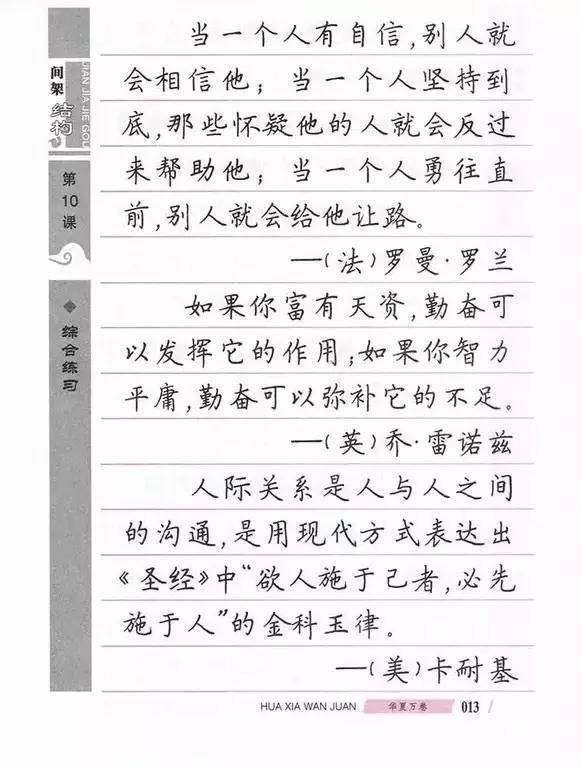 间架
结构
JIAN JIA JIE GOU
第
10
课
◆ 综合练习
当一个人有自信,别人就
会相信他;当一个人坚持到
底,那些怀疑他的人就会反过
来帮助他;当一个人勇往直
前,别人就会给他让路。
—(法)罗曼·罗兰
如果你富有天资,勤奋可
以发挥它的作用;如果你智力
平庸,勤奋可以弥补它的不足。
—(英)乔·雷诺兹
人际关系是人与人之间
的沟通,是用现代方式表达出
《圣经》中“欲人施于己者,必先
施于人”的金科玉律。
—(美)卡耐基
HUA XIA WAN JUAN 华夏万卷 013